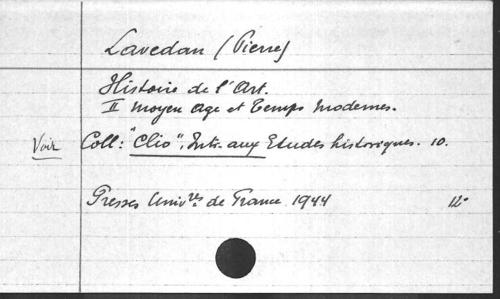 Lavedan (Pierre)
Histoire de l'Art.
II Moyen Age et Temps Modernes.
Voir Coll: "Clio", Intr. aux Etudes historiques. 10.
Presses Univ.res de France 1944 12°